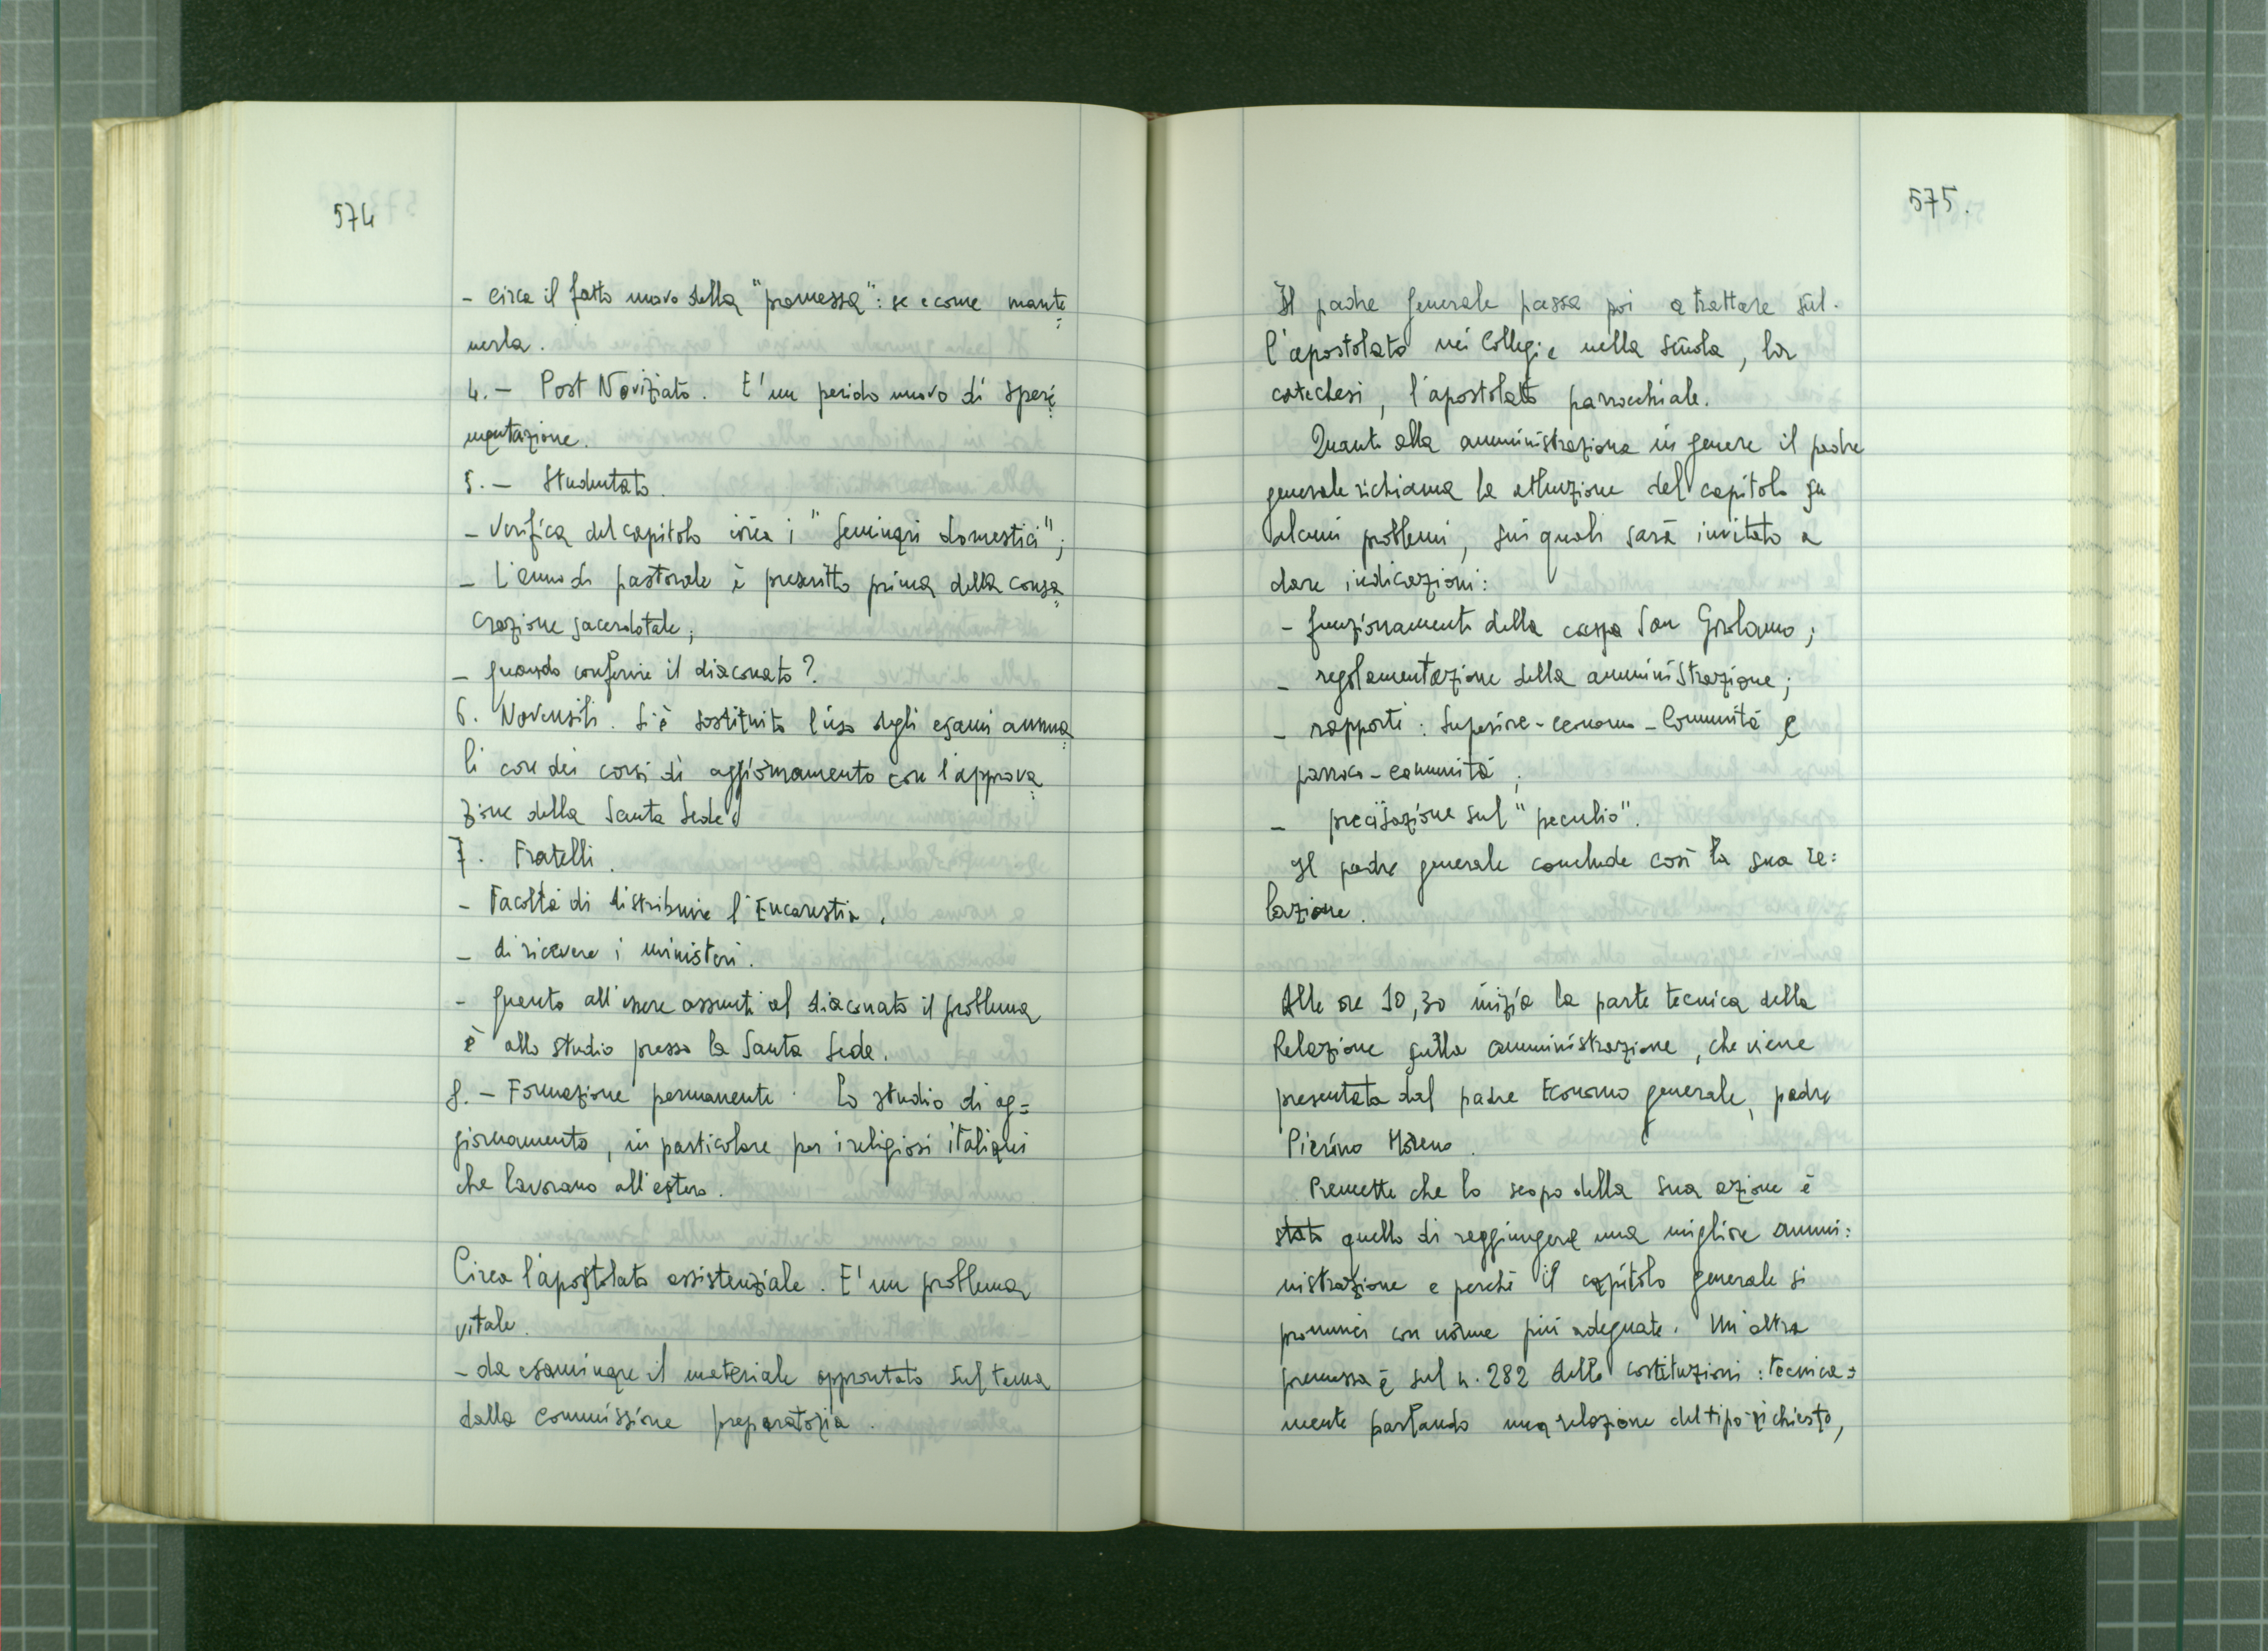 574
- circa il fatto nuovo della "promessa": se e come mante=
nerla.
4. - Post Noviziato. E' un periodo nuovo di speri=
mentazione.
5. - Studentato.
- Verifica del capitolo circa i "seminari domestici";
- L'anno di pastorale è prescritto prima della consa=
crazione sacerdotale;
- quando conferire il diaconato?
6. Novensili. Si è sostituito l'uso degli esami annua=
li con dei corsi di aggiornamento con l'approva=
zione della Santa Sede.
7. Fratelli.
- Facoltà di distribuire l'Eucarestia.
- di ricevere i ministeri.
- quanto all'essere assunti al diaconato il problema
è allo studio presso la Santa Sede.
8. - Formazione permanente. Lo studio di ag=
giornamento, in particolare per i religiosi italiani
che lavorano all'estero.
Circa l'apostolato assistenziale. E' un problema
vitale.
- da esaminare il materiale approntato sul tema
dalla commissione preparatoria.
575.
Il padre generale passa poi a trattare sul-
l'apostolato nei Collegi e nella scuola, la
catechesi, l'apostolato parrocchiale.
Quanto alla amministrazione in genere il padre
generale richiama la attenzione del capitolo su
alcuni problemi, sui quali sarà invitato a
dare indicazioni:
- funzionamento della cassa San Girolamo;
- regolamentazione della amministrazione;
- rapporti: Superiore-economo-Comunità e
parroco-comunità;
- precisazione sul "peculio".
Il padre generale conclude così la sua re=
lazione.
Alle ore 10,30 inizia la parte tecnica della
Relazione sulla amministrazione, che viene
presentata dal padre Economo generale, padre
Pierino Moreno.
Premette che lo scopo della sua azione è
stato quello di raggiungere una migliore ammi=
nistrazione e perché il capitolo generale si
pronunci con norme più adeguate. Un'altra
premessa è sul n. 282 delle costituzioni: tecnica=
mente parlando una relazione del tipo richiesto,